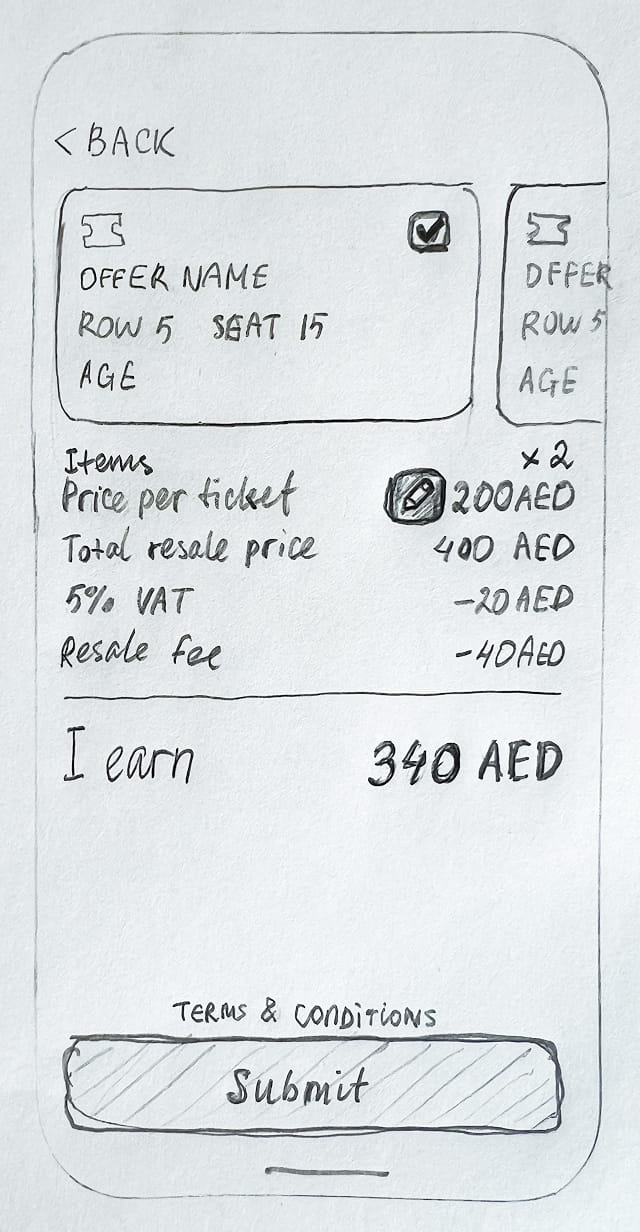 < BACK
OFFER NAME
ROW 5 SEAT 15
AGE
OFFER
ROW 5
AGE
Items x 2
Price per ticket 200 AED
Total resale price 400 AED
5% VAT -20 AED
Resale fee -40 AED
I earn 340 AED
TERMS & CONDITIONS
Submit